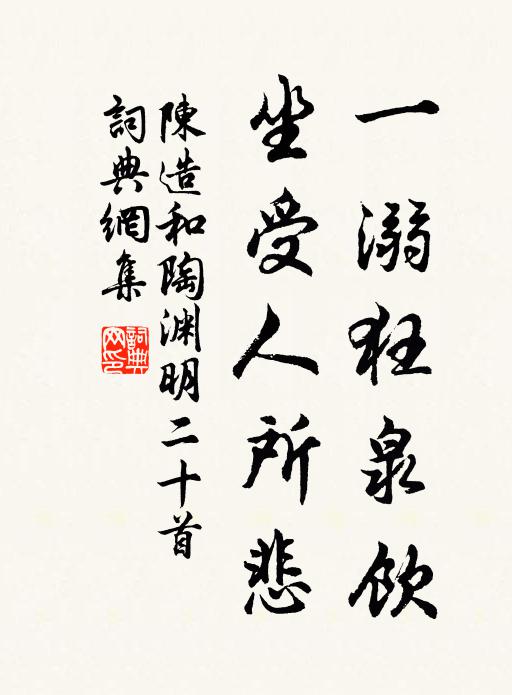 一溺狂泉飲
坐受人所悲
陳造和陶淵明二十首
詞典網集
詞典網印